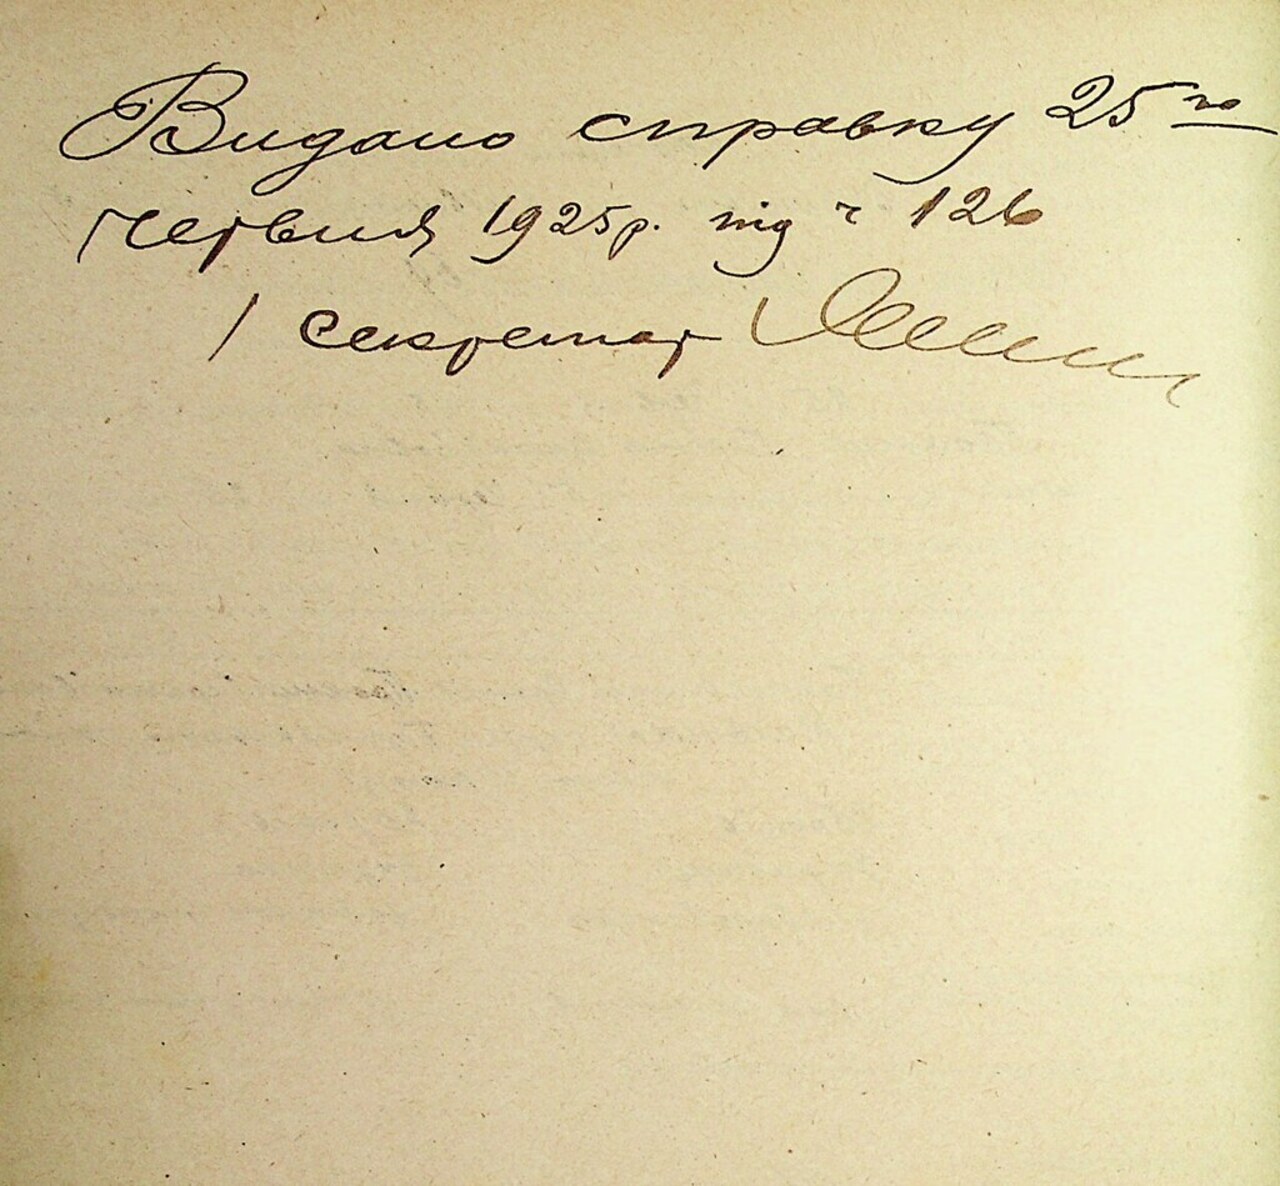 Видано справку 25го
червня 1925р. під ч 126
/ секретар